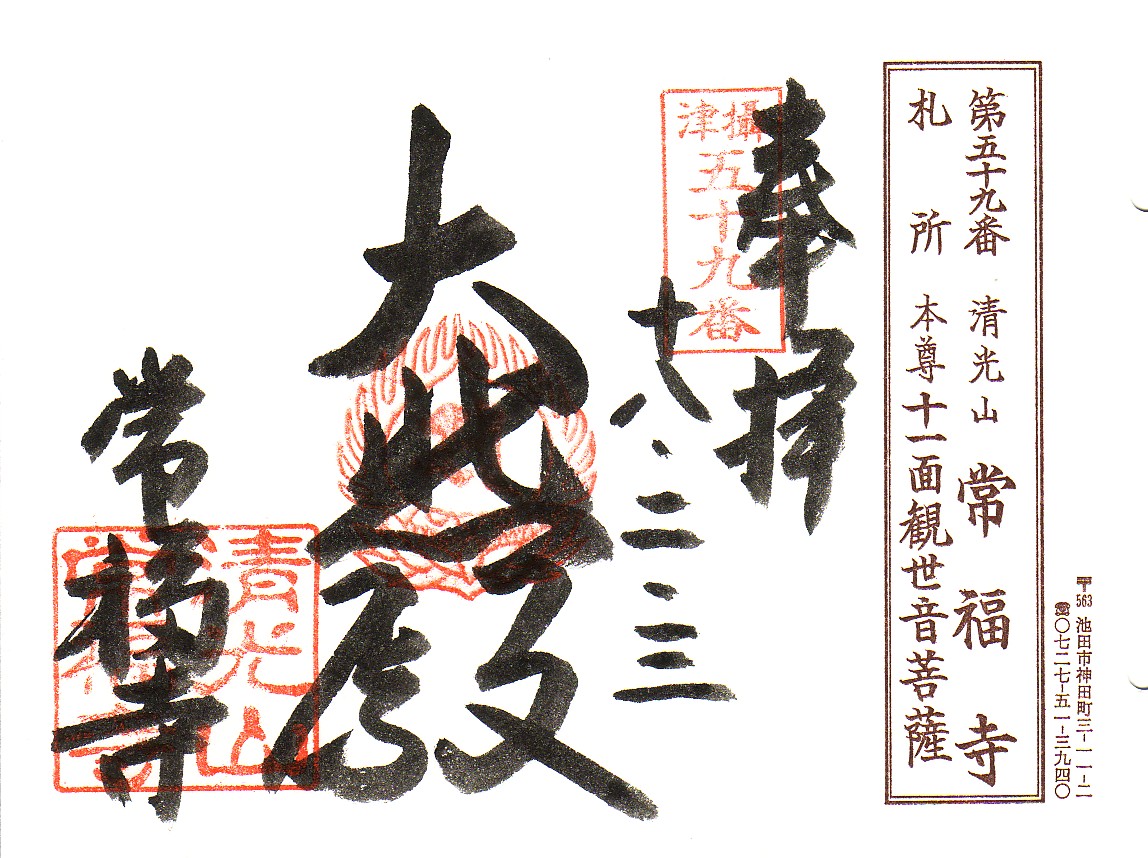 〒563 池田市神田町三-一一-二
☎〇七二七-五一-三九四〇
第五十九番 清光山 常福寺
札所 本尊十一面観世音菩薩
奉拝
攝津
五十九番
十八、二、三
大悲殿
常福寺
清光山
常福寺